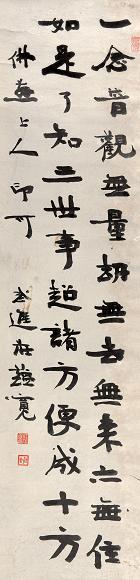 一念普觀無量劫無去無来亦無住
如是了知三世事超諸方便成十方
佛上人印可 武進莊蘊寬